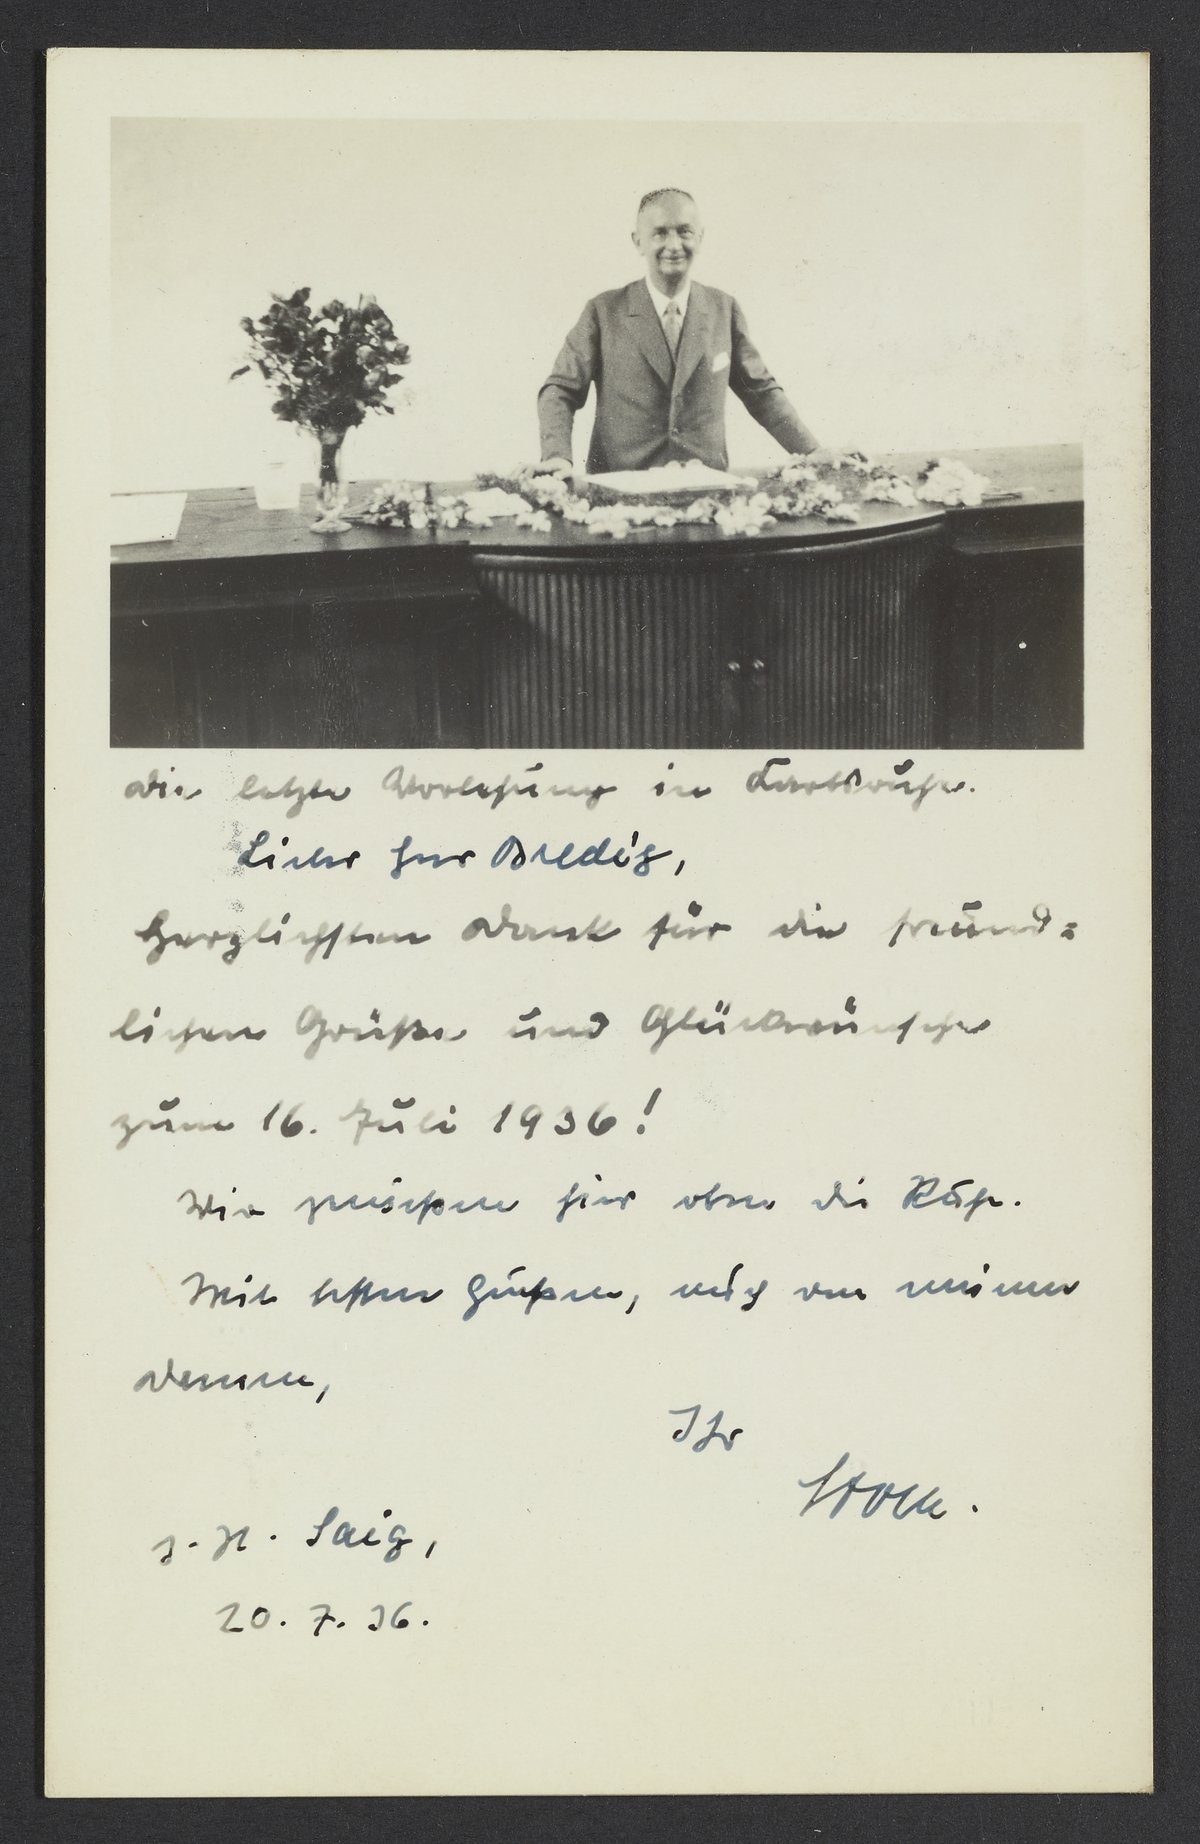 Die letzte Vorlesung in Karlsruhe.
Lieber Herr Bredig,
Herzlichsten Dank für die freund=
lichen Grüße und Glückwünsche
zum 16. Juli 1936!
Wir genießen hier oben die Ruhe.
Mit besten Grüßen, auch von meinen
Damen,
Ihr
Stock.
z. Zt. Saig,
20. 7. 36.